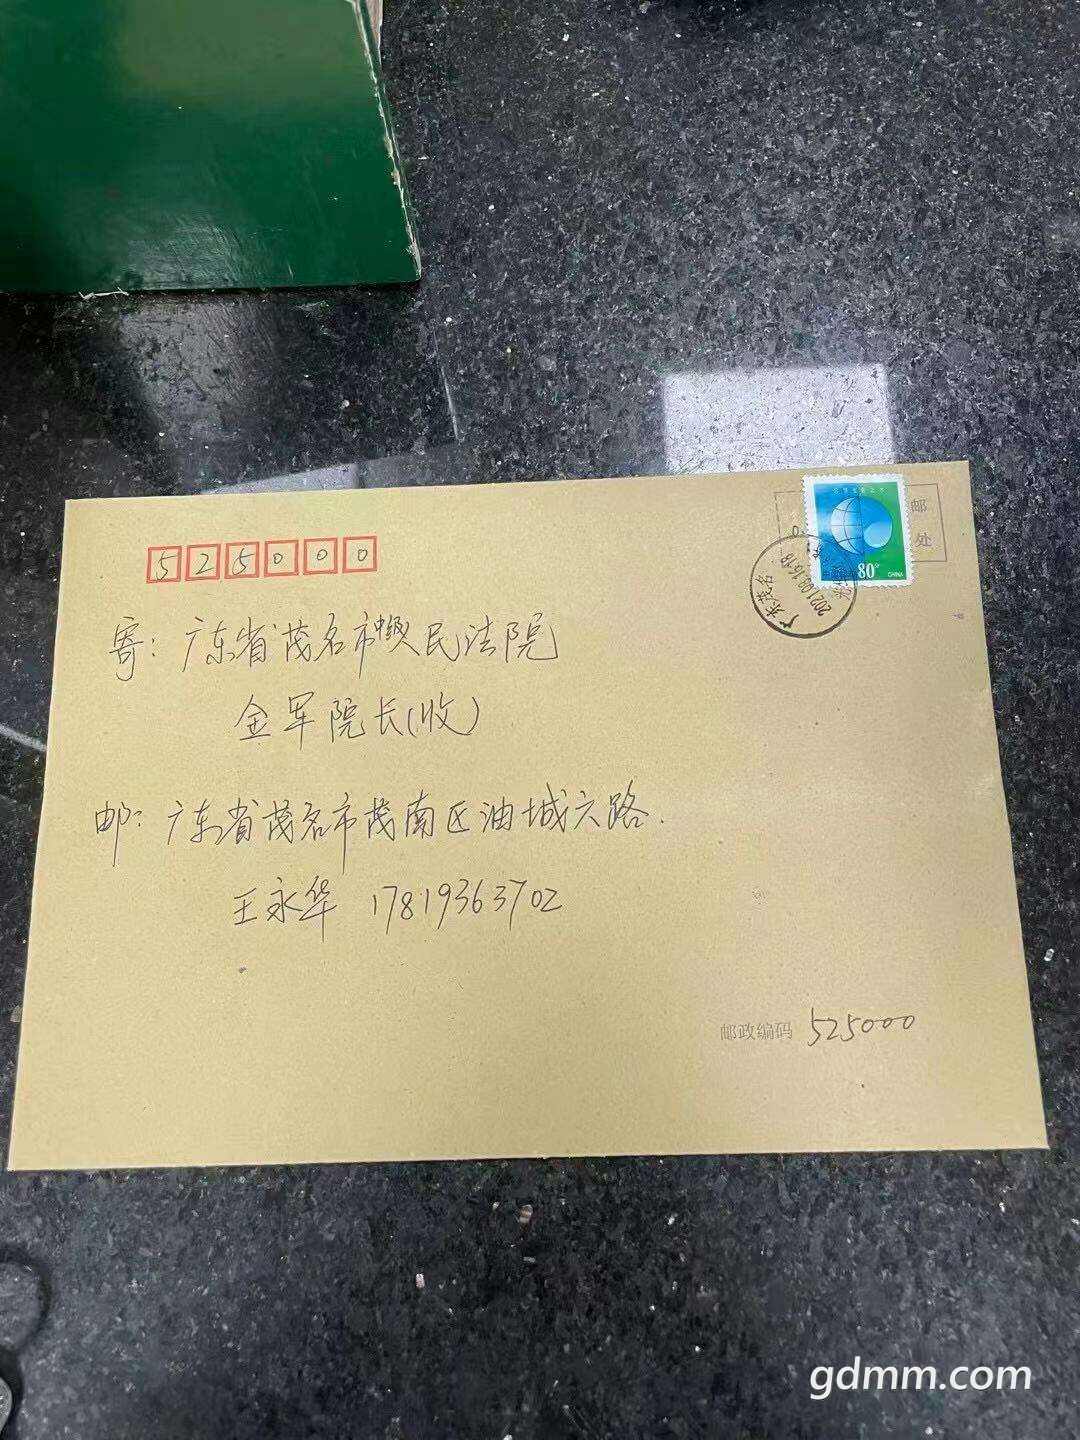 邮
处
80分
CHINA
广东茂名
2021.09.16.18
525000
寄：广东省茂名市中级人民法院
金军院长(收)
邮：广东省茂名市茂南区油城六路.
王永华 17819363702
邮政编码 525000
gdmm.com